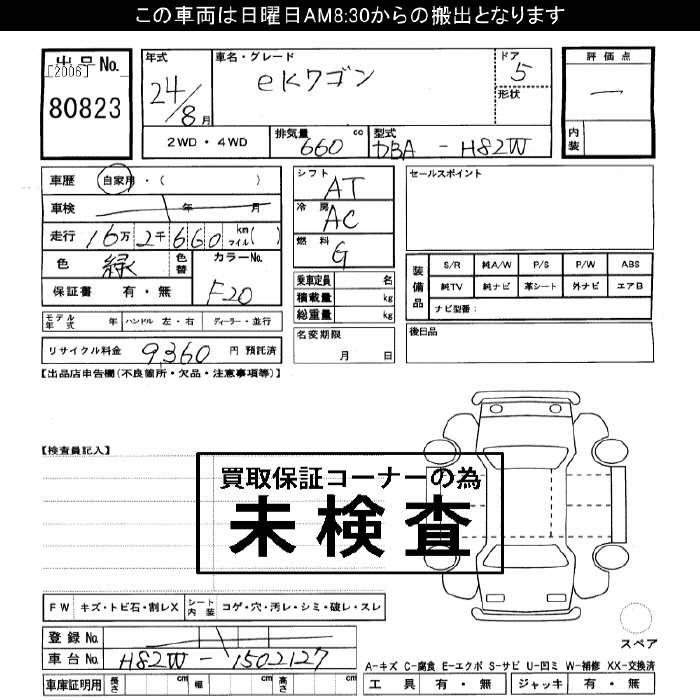 この車両は日曜日AM8:30からの搬出となります
出品No.
[2006]
80823
年式 24/8月
車名・グレード eKワゴン
ドア 5
形状
評価点 —
内装
2WD・4WD
排気量 660 cc
型式 DBA - H82W
車歴 自家用・( )
車検 年 月
走行 16万2千660 km マイル( )
色 緑
色替
カラーNo. F20
保証書 有・無
モデル年式 年
ハンドル 左・右
ディーラー・並行
リサイクル料金 9,360 円 預託済
シフト AT
冷房 AC
燃料 G
乗車定員 名
積載量 kg
総重量 kg
名変期限 月 日
セールスポイント
装備品
S/R 純A/W P/S P/W ABS
純TV 純ナビ 革シート 外ナビ エアB
ナビ型番:
後日品
【出品店申告欄(不良箇所・欠品・注意事項等)】
【検査員記入】
買取保証コーナーの為
未検査
FW キズ・トビ石・割レX
シート内装 コゲ・穴・汚レ・シミ・破レ・スレ
登録No.
車台No. H82W - 1502127
車庫証明用 長さ cm 幅 cm 高さ cm
スペア
A-キズ C-腐食 E-エクボ S-サビ U-凹ミ W-補修 XX-交換済
工具 有・無 ジャッキ 有・無